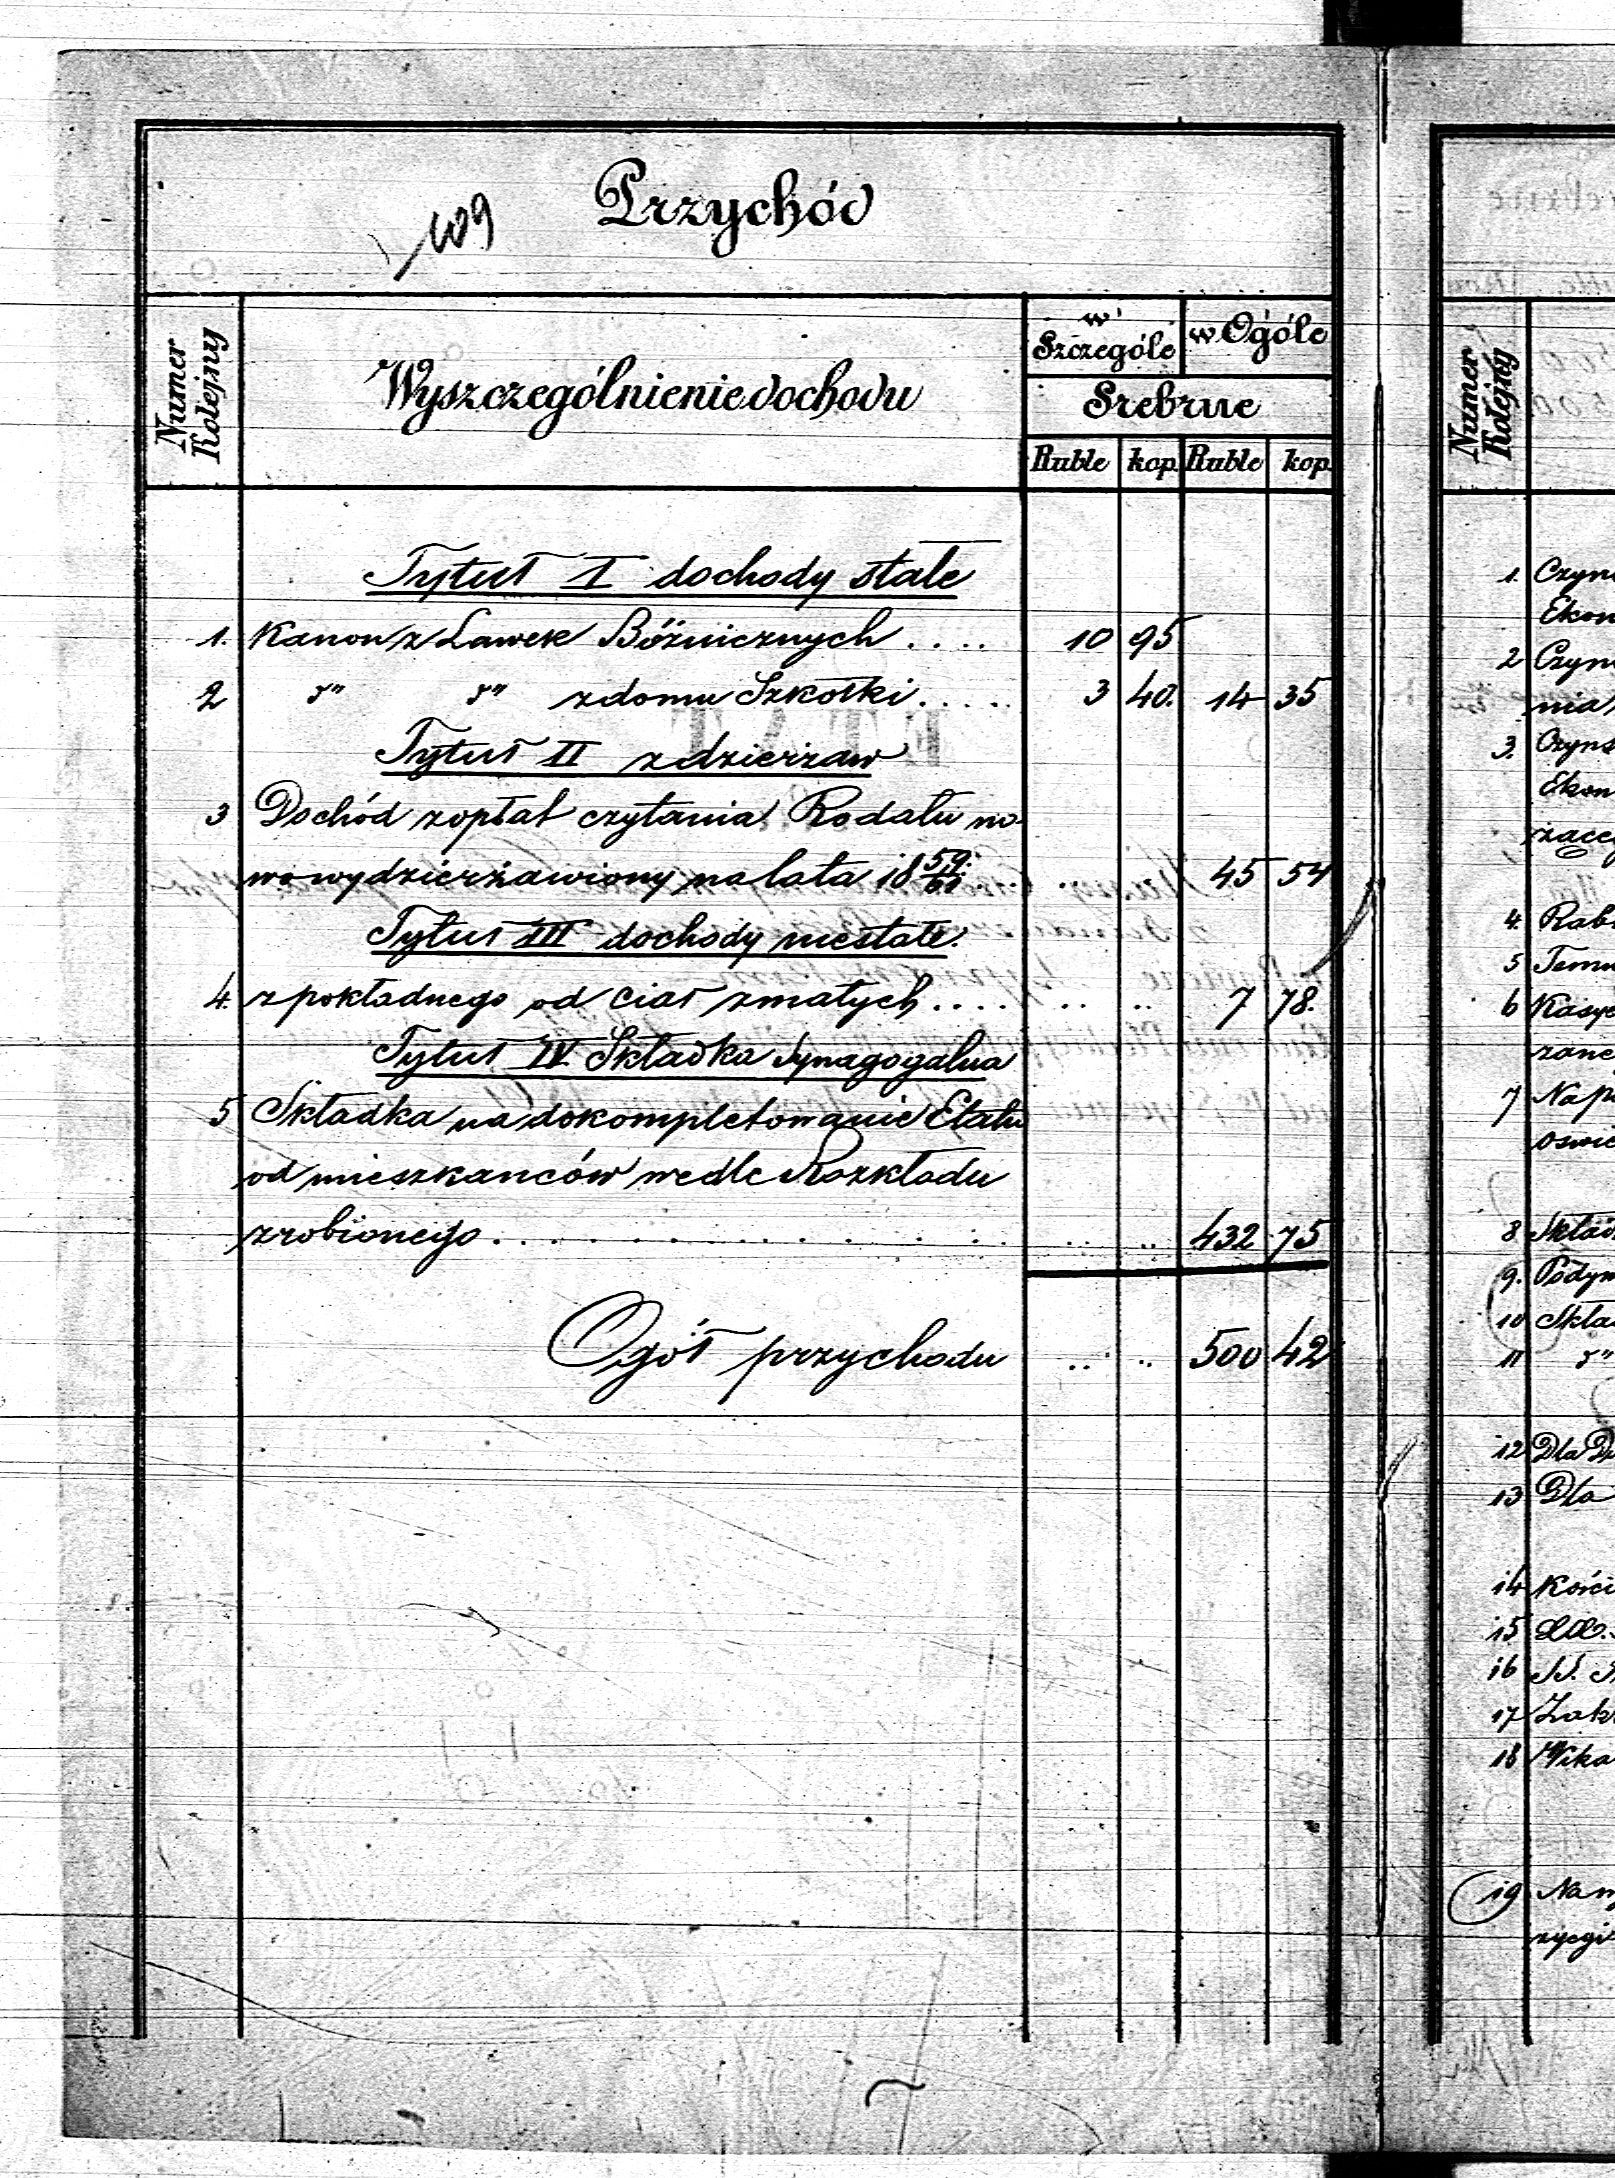 Przychód
109
Numer Kolejny
Wyszczególnienie dochodu
w Szczególe
w Ogóle
Srebrne
Ruble kop. Ruble kop.
Tytuł I dochody stałe
1. Kanon z Ławek Bóżnicznych .... 10 95
2 „ „ z domu Szkołki ..... 3 40. 14 35
Tytuł II z dzierżaw
3 Dochód z opłat czytania Rodału no
wo wydzierżawiony na lata 18 59/61 .. 45 54
Tytuł III dochody niestałe.
4. z pokładnego od ciał zmałych .... 7 78.
Tytuł IV. Składka Synagogalna
5 Składka na dokompletowanie Etatu
od mieszkanców wedle Rozkładu
zrobionego . . . . . . . . . . . . 432 75
Ogół przychodu .. .. 500 42
Numer Kolejny
1.
Ekon
2
nia
3.
Ekon
4. Rab
5
6
7 Nap
8
9.
10
11 „
12 Dla
13 Dla
14
15
16
17
18
19